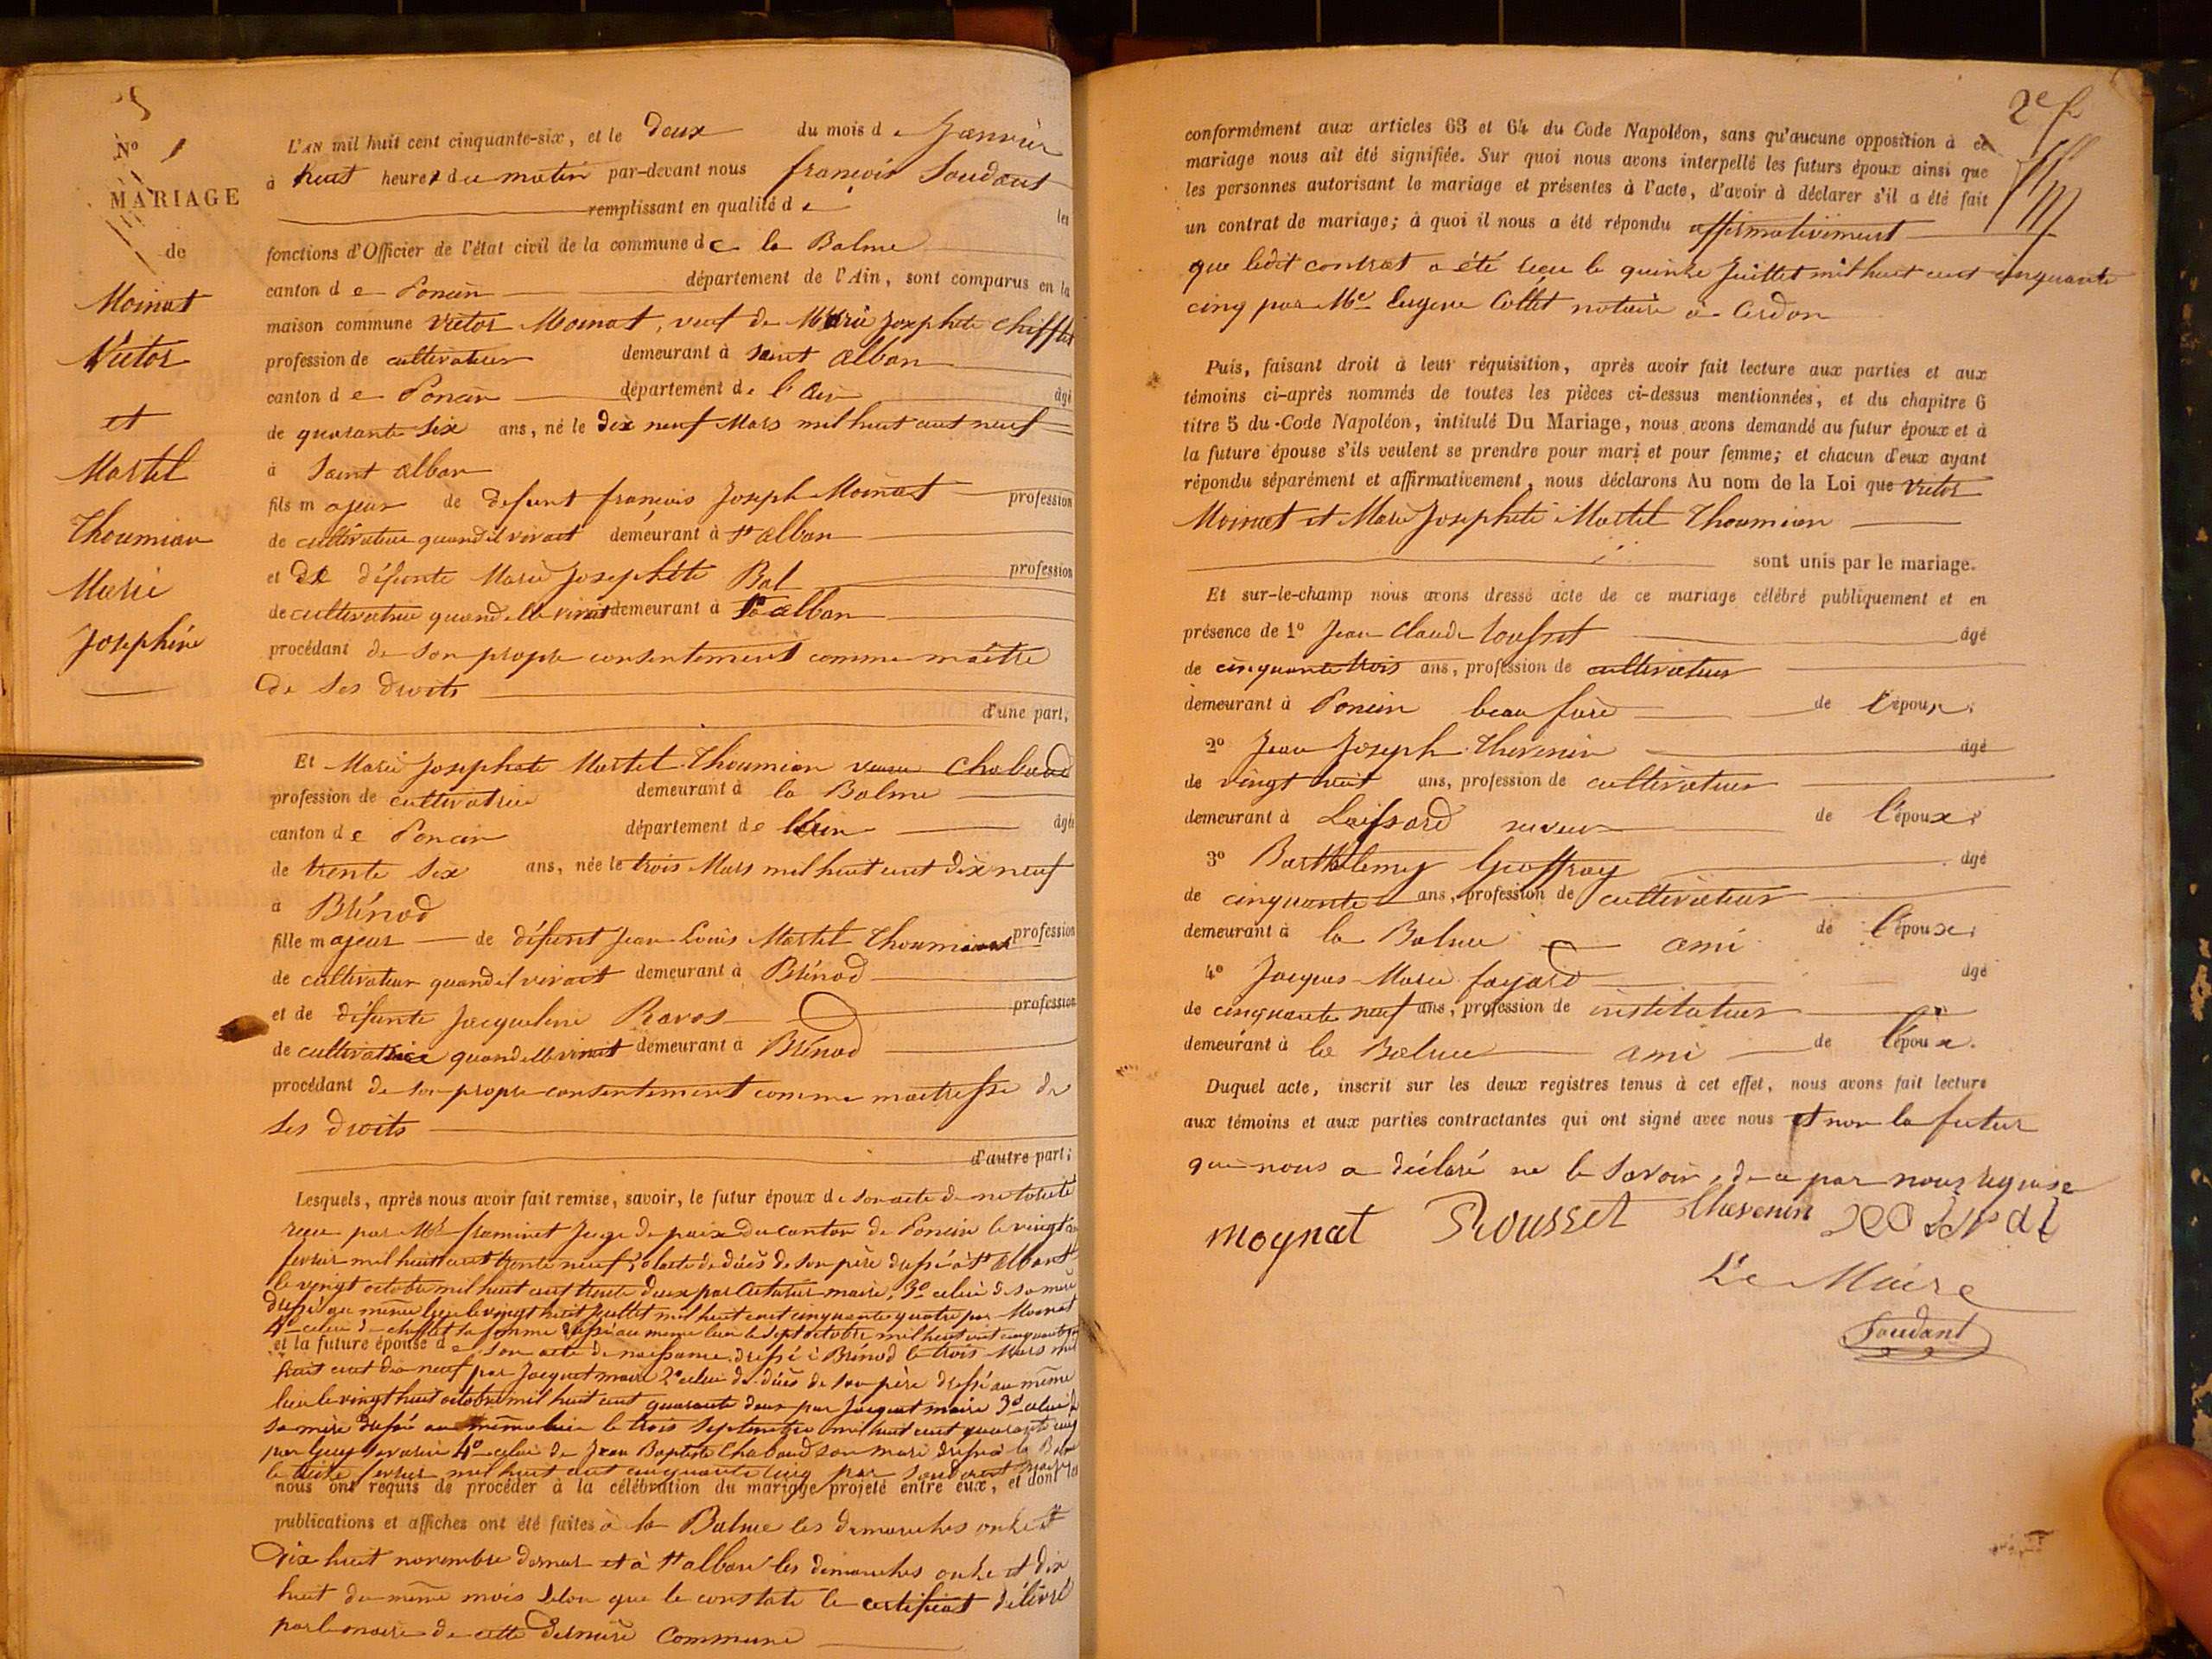 N° 1
MARIAGE
de
Moinat
Victor
et
Martel
Thoumian
Marie
Josephine
L'AN mil huit cent cinquante-six, et le deux du mois de Janvier
à huit heures du matin par-devant nous françois Soudant
remplissant en qualité d les
fonctions d'Officier de l'état civil de la commune de la Balme
canton de Poncin département de l'Ain, sont comparus en la
maison commune Victor Moinat, veuf de Marie Josephete Chifflet
profession de cultivateur demeurant à Saint alban
canton de Poncin département de l'ain âgé
de quarante six ans, né le dix neuf Mars mil huit cent neuf
à Saint alban
fils majeur de defunt françois Joseph Moinat profession
de cultivateur quand il vivait demeurant à St alban
et de défunte Marie Josephete Bal profession
de cultivatrice quand elle vivait demeurant à St alban
procédant de son propre consentement comme maître
de ses droits
d'une part,
Et Marie Josephete Martel Thoumian veuve Chabaud
profession de cultivatrice demeurant à la Balme
canton de Poncin département de l'Ain âgée
de trente six ans, née le trois Mars mil huit cent dix neuf
à Brénod
fille majeur de défunt Jean Louis Martel Thoumian profession
de cultivateur quand il vivait demeurant à Brénod
et de défunte Jacqueline Ravos profession
de cultivatrice quand elle vivait demeurant à Brénod
procédant de son propre consentement comme maitresse de
ses droits
d'autre part;
Lesquels, après nous avoir fait remise, savoir, le futur époux de son acte de notoriété
reçu par Mr Juge de paix du canton de Poncin le vingt
fevrier mil huit cent trente neuf, 2° l'acte de décès de son père dressé à St alban
le vingt octobre mil huit cent trente deux par maire, 3° celui de sa mère
dressé au même lieu le vingt huit juillet mil huit cent cinquante quatre par Moinat
4° celui de chifflet sa femme dressé au meme lieu le sept octobre mil huit cent cinquante
et la future épouse de son acte de naissance dressé à Brénod le trois Mars mil
huit cent dix neuf par Jacquet maire 2° celui de décès de son père dressé au même
lieu le vingt huit octobre mil huit cent quarante deux par Jacquet maire 3° celui de
sa mère dressé au même lieu le trois Septembre mil huit cent quarante cinq
par Guy 4° celui de Jean Baptiste Chabaud son mari dressé à la Balme
le fevrier mil huit cent cinquante cinq par Soudant maire
nous ont requis de procéder à la célébration du mariage projeté entre eux, et dont les
publications et affiches ont été faites à la Balme les dimanches onze et
dix huit novembre dernier et à St alban les dimanches onze et dix
huit du même mois selon que le constate le certificat délivré
par le maire de cette dernière commune
2e f
conformément aux articles 63 et 64 du Code Napoléon, sans qu'aucune opposition à ce
mariage nous ait été signifiée. Sur quoi nous avons interpellé les futurs époux ainsi que
les personnes autorisant le mariage et présentes à l'acte, d'avoir à déclarer s'il a été fait
un contrat de mariage; à quoi il nous a été répondu affirmativement
que ledit contrat a été reçu le quinze Juillet mil huit cent cinquante
cinq par Me Eugene Collet notaire à Cerdon
Puis, faisant droit à leur réquisition, après avoir fait lecture aux parties et aux
témoins ci-après nommés de toutes les pièces ci-dessus mentionnées, et du chapitre 6
titre 5 du Code Napoléon, intitulé Du Mariage, nous avons demandé au futur époux et à
la future épouse s'ils veulent se prendre pour mari et pour femme; et chacun d'eux ayant
répondu séparément et affirmativement, nous déclarons Au nom de la Loi que Victor
Moinat et Marie Josephete Martel Thoumian
sont unis par le mariage.
Et sur-le-champ nous avons dressé acte de ce mariage célébré publiquement et en
présence de 1° Jean Claude Rousset âgé
de cinquante trois ans, profession de cultivateur
demeurant à Poncin beau frère de l'époux.
2° Jean Joseph Thevenin âgé
de vingt huit ans, profession de cultivateur
demeurant à Leissard neveu de l'époux,
3° Barthélemy Geoffray âgé
de cinquante ans, profession de cultivateur
demeurant à la Balme ami de l'époux,
4° Jacques Marie fayard âgé
de cinquante neuf ans, profession de instituteur
demeurant à la Balme ami de l'époux.
Duquel acte, inscrit sur les deux registres tenus à cet effet, nous avons fait lecture
aux témoins et aux parties contractantes qui ont signé avec nous et non la futur
qui nous a déclaré ne le Savoir, de ce par nous requise
moynat Rousset Thevenin
Le Maire
Soudant